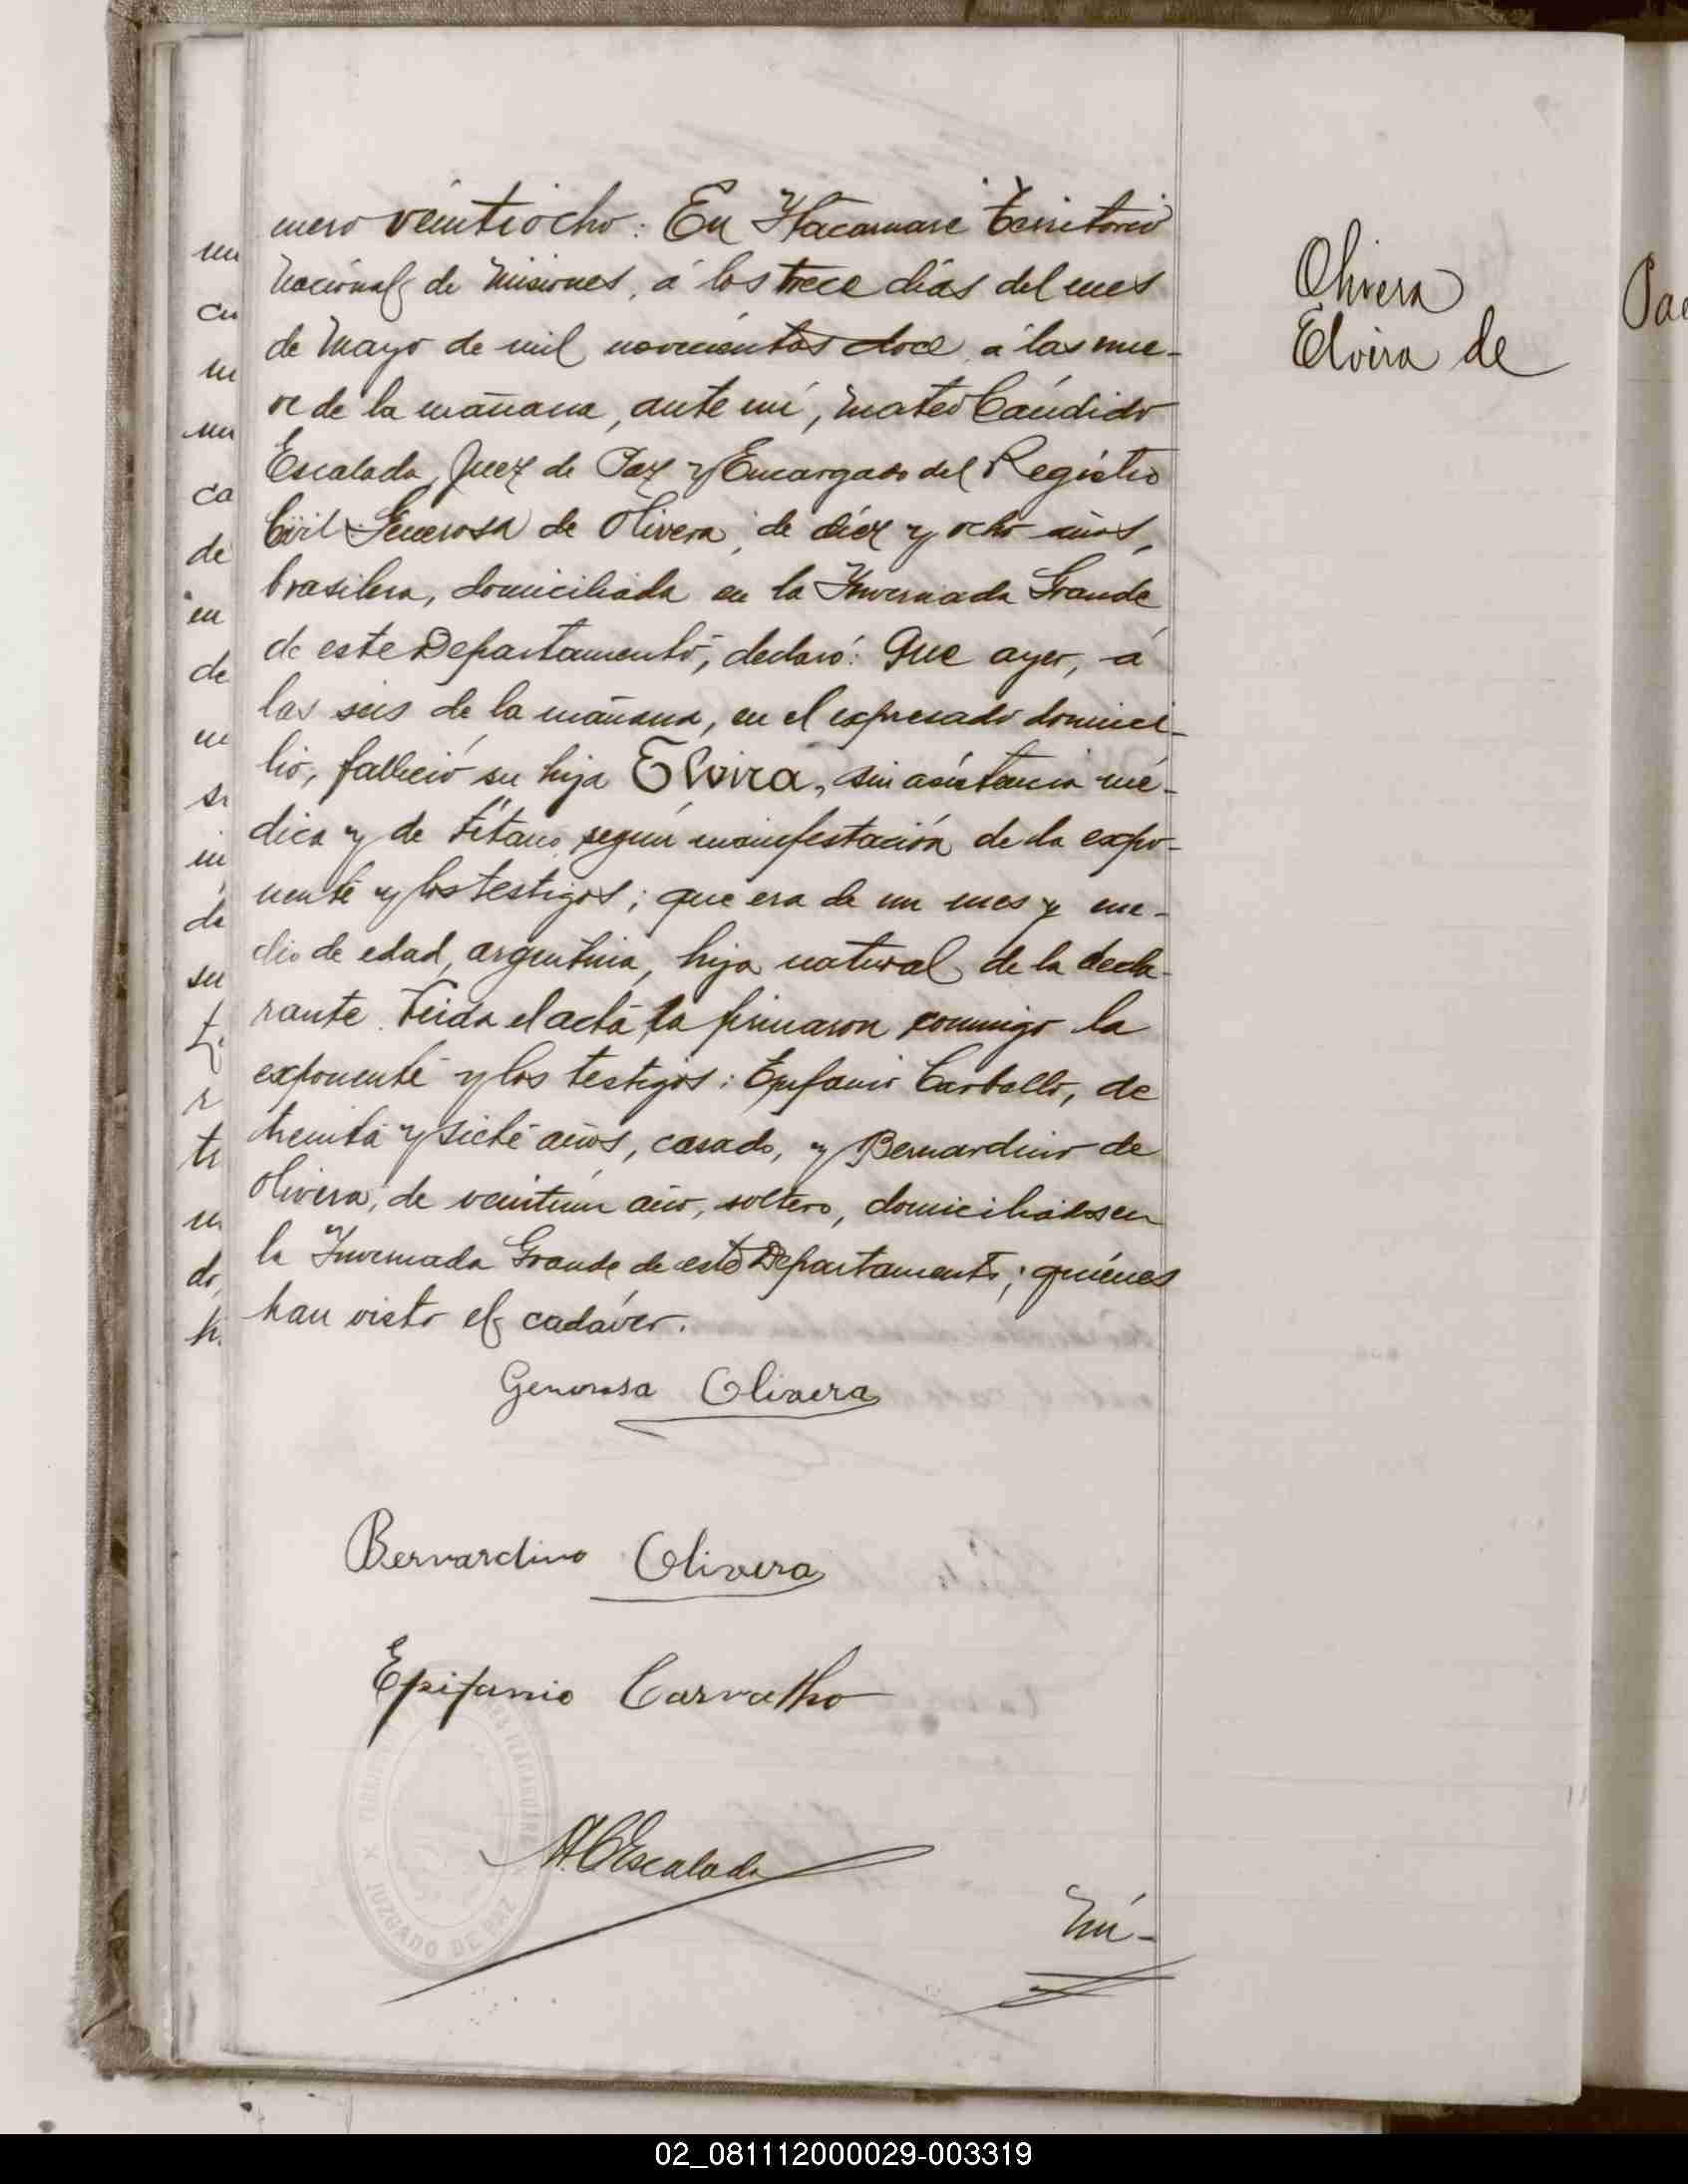 mero veintiocho: En Itacaruaré Territorio
Nacional de Misiones, á los trece días del mes
de Mayo de mil novecientos doce, á las nue-
ve de la mañana, ante mí, Mateo Cándido
Escalada, Juez de Paz y Encargado del Registro
Civil: Generosa de Olivera, de diez y ocho años,
brasilera, domiciliada en la Invernada Grande
de este Departamento, declaró: Que ayer, á
las seis de la mañana, en el expresado domici-
lio, falleció su hija Elvira, sin asistencia mé-
dica y de tétano, según manifestación de la expo-
nente y los testigos; que era de un mes y me-
dio de edad, argentina, hija natural de la decla-
rante. Leida el acta, la firmaron conmigo la
exponente y los testigos: Epifanio Carballo, de
treinta y siete años, casado, y Bernardino de
Olivera, de veintiun año, soltero, domiciliados en
la Invernada Grande de este Departamento; quiénes
han visto el cadáver.
Olivera
Elvira de
Generosa Olivera
Bernardino Olivera
Epifanio Carvalho
M. C. Escalada
JUZGADO DE PAZ
Nú-
02_081112000029-003319